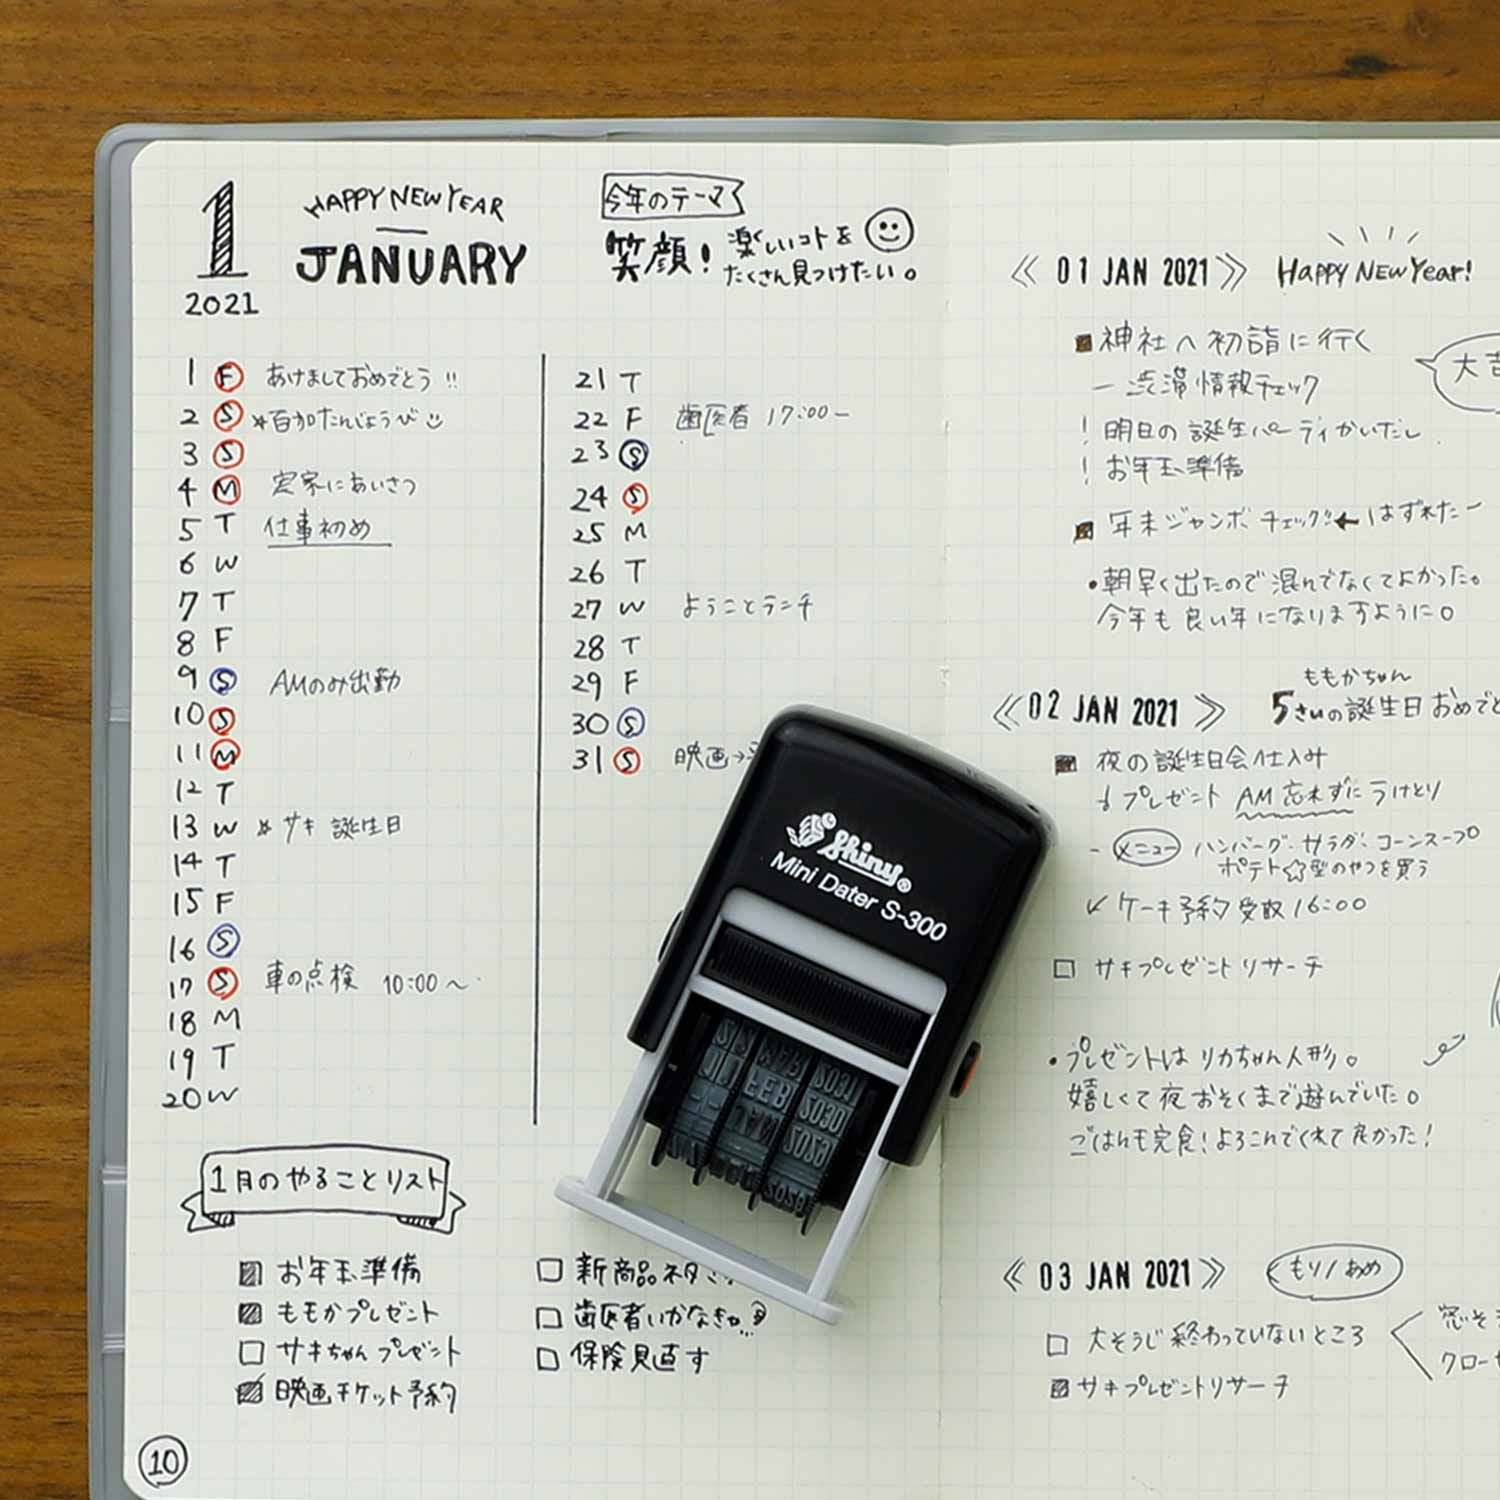 1
2021
HAPPY NEW YEAR
JANUARY
今年のテーマ
笑顔！楽しいコトを
たくさん見つけたい。
1 F あけましておめでとう!!
2 S *百加たんじょうび
3 S
4 M 実家にあいさつ
5 T 仕事初め
6 W
7 T
8 F
9 S AMのみ出勤
10 S
11 M
12 T
13 W *サキ 誕生日
14 T
15 F
16 S
17 S 車の点検 10:00〜
18 M
19 T
20 W
21 T
22 F 歯医者 17:00〜
23 S
24 S
25 M
26 T
27 W ようことランチ
28 T
29 F
30 S
31 S 映画→
1月のやることリスト
お年玉準備
ももかプレゼント
サキちゃんプレゼント
映画チケット予約
新商品ネタ
歯医者いかなきゃ...
保険見直す
10
Shiny
Mini Dater S-300
《01 JAN 2021》 Happy New Year!
神社へ初詣に行く
― 渋滞情報チェック
大吉
！明日の誕生パーティかいだし
！お年玉準備
年末ジャンボチェック!!←はずれたー
•朝早く出たので混んでなくてよかった。
今年も良い年になりますように。
ももかちゃん
《02 JAN 2021》 5さいの誕生日おめでと
夜の誕生日会仕込み
プレゼント AM忘れずにうけとり
- メニュー ハンバーグ・サラダ・コーンスープ
ポテト☆型のやつを買う
✓ケーキ予約受取16:00
サキプレゼントリサーチ
•プレゼントはリカちゃん人形。
嬉しくて夜おそくまで遊んでいた。
ごはんも完食！よろこんでくれて良かった！
《03 JAN 2021》 もり/あめ
大そうじ終わっていないところ
窓そう
クローゼ
サキプレゼントリサーチ